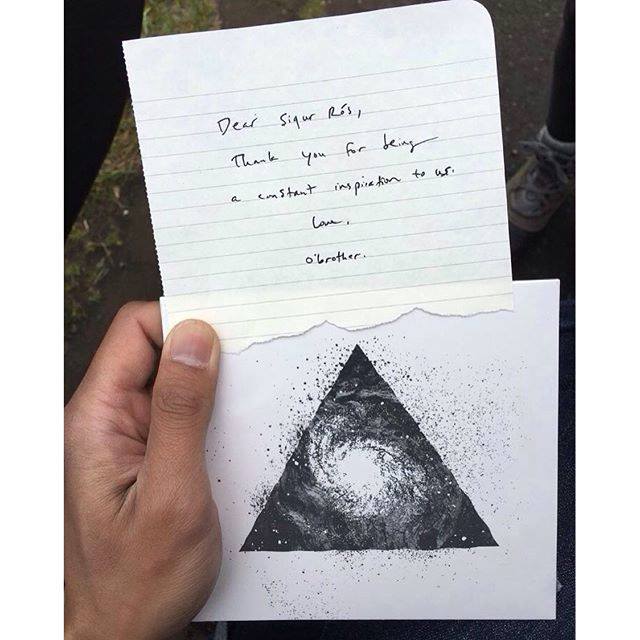 Dear Sigur Rós,
Thank you for being
a constant inspiration to us.
Love,
o'brother.